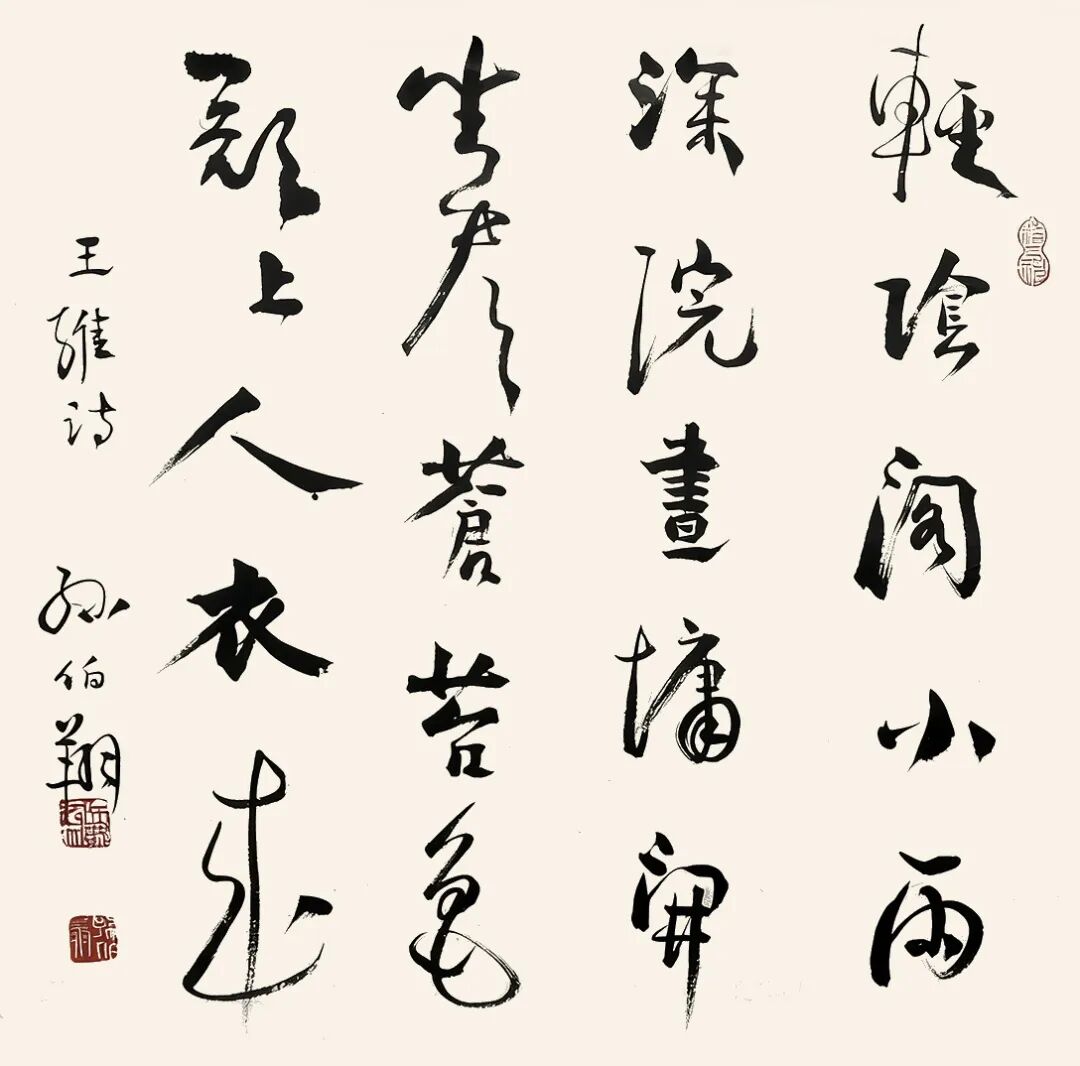 輕陰閣小雨
深院晝慵開
坐看蒼苔色
欲上人衣来
王維詩 孫伯翔